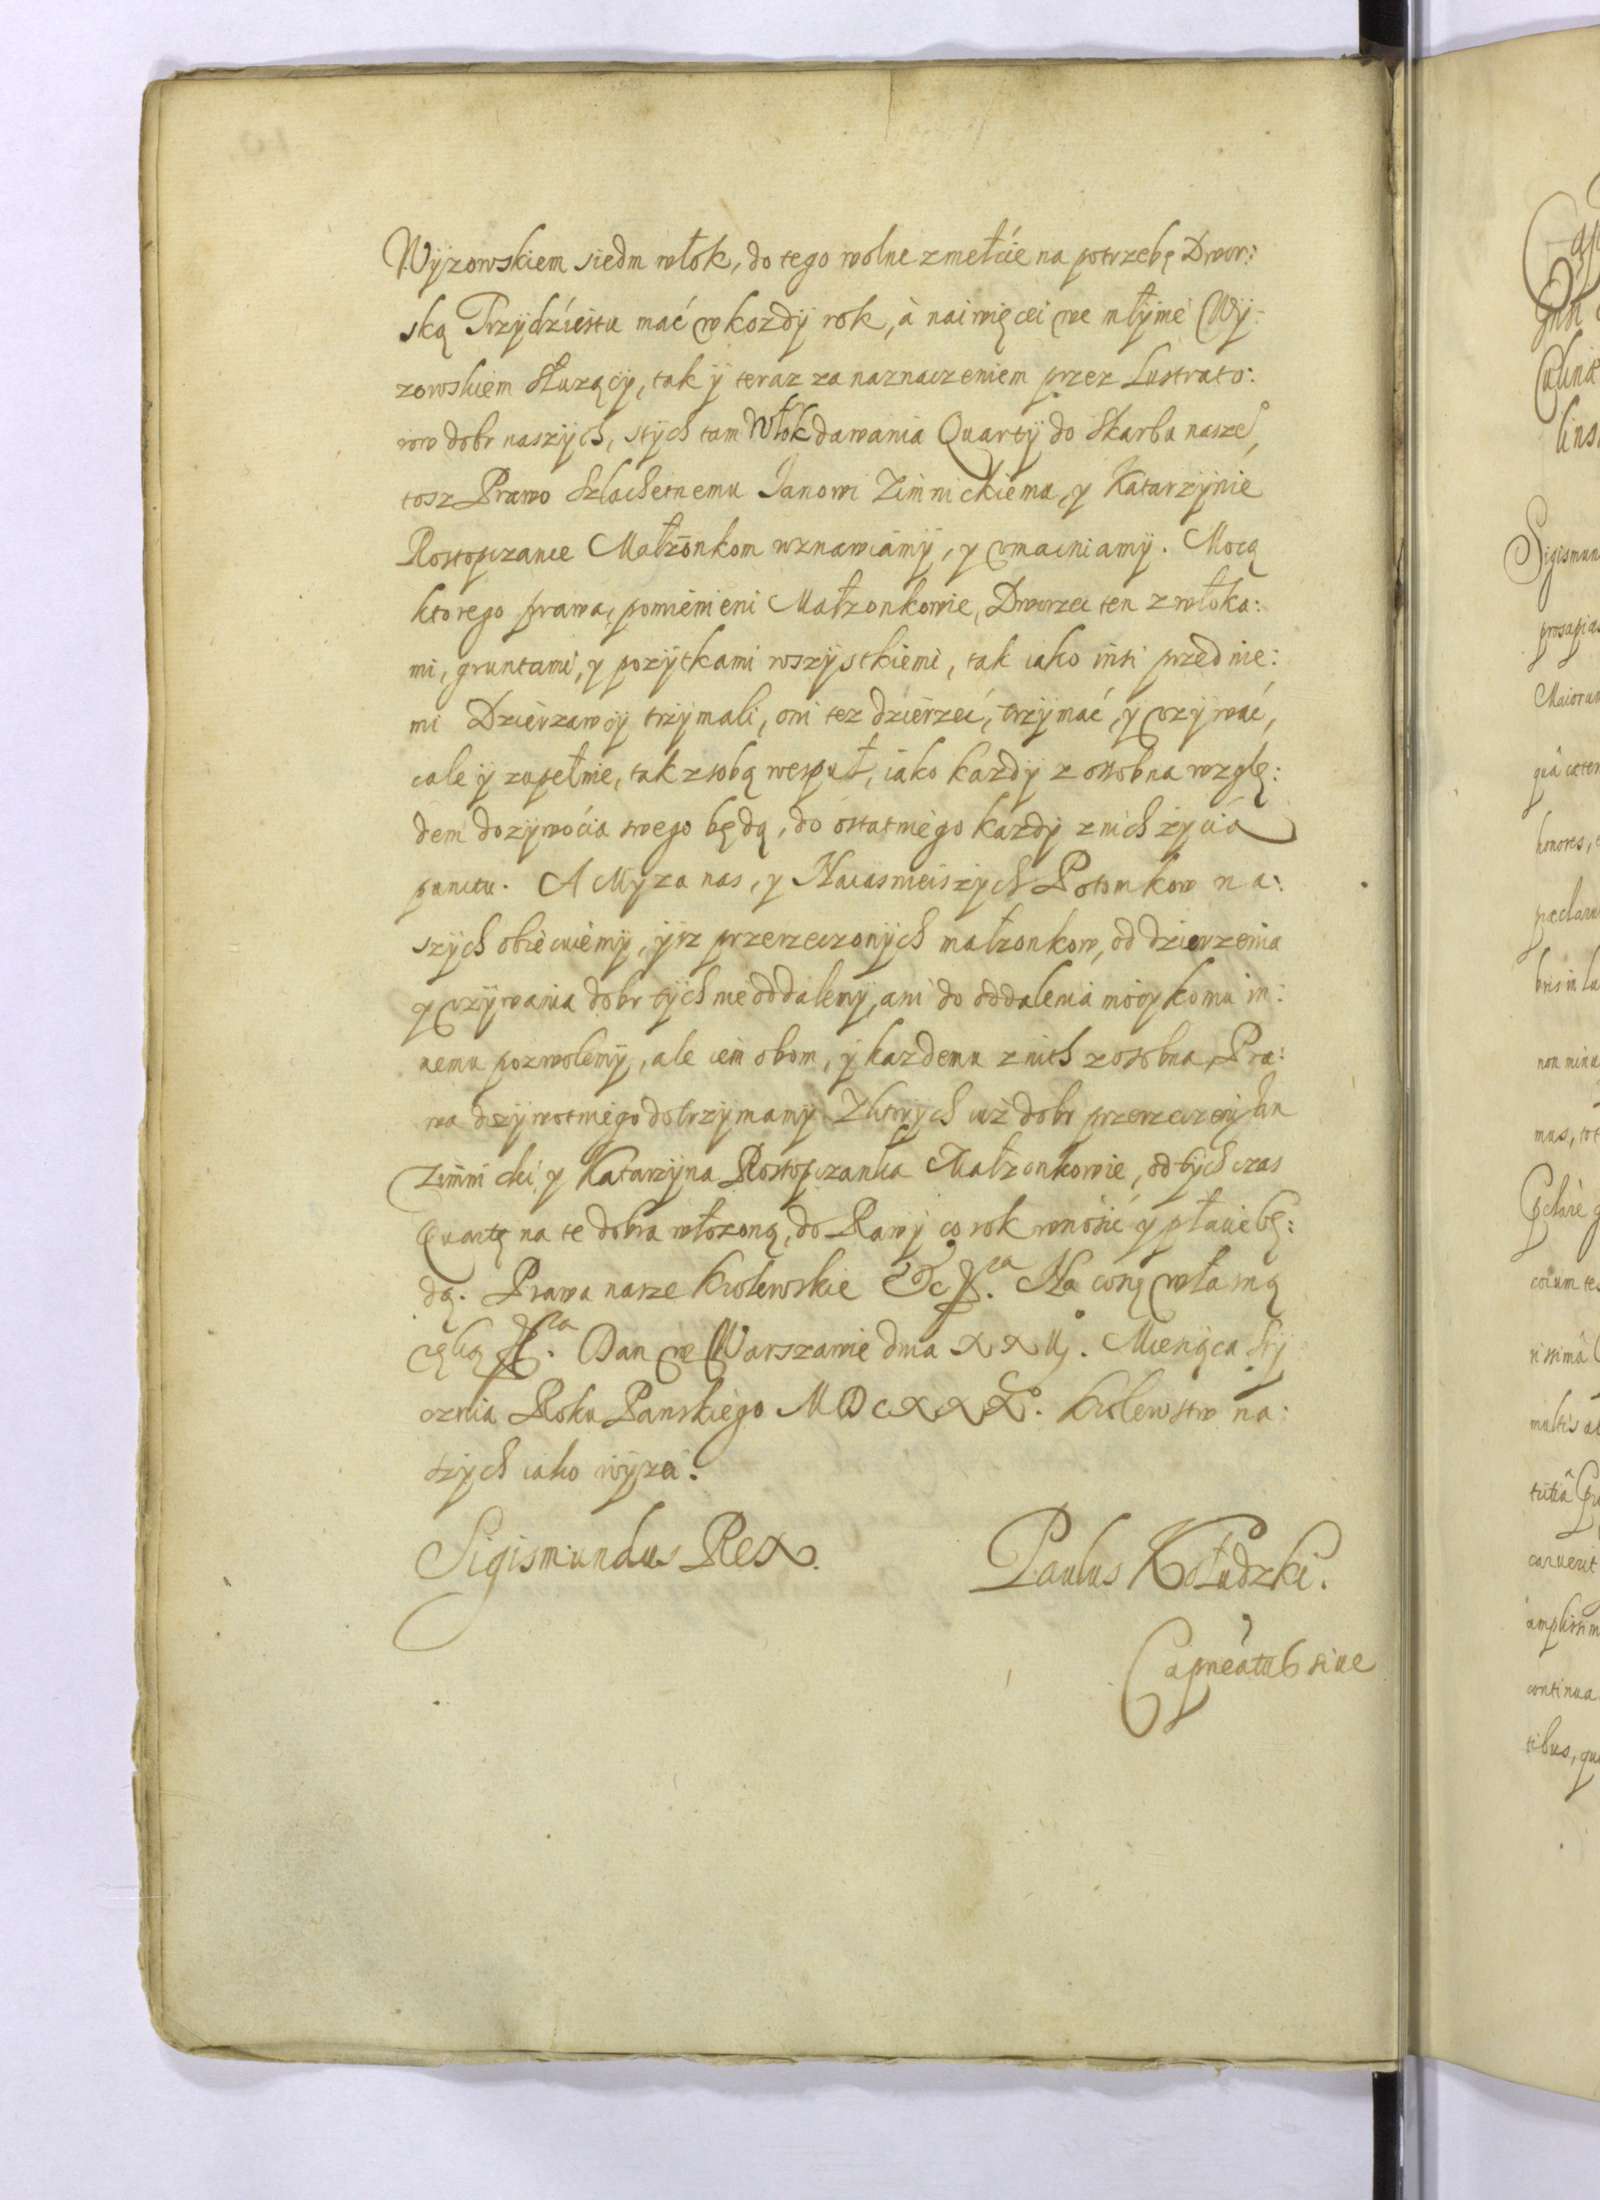 Wyzowskiem siedm włok, do tego wolne zmełcie na potrzebę Dwor:
ską Trzydziestu mać w kozdy rok, à naiwięcei we młynie Wy:
zowskiem słuzący, tak ÿ teraz za naznaczeniem przez Lustrato:
row dobr naszych, stych tam Włok dawania Quarty do Skarbu nasze°,
tosz Prawo Szlachetnemu Janowi Zimnickiemu, y Katarzynie
Rostopczance Małzonkom wznawiamy, y vmacniamy. Mocą
ktorego prawa, pomienieni Małzonkowie, Dworzec ten z włoka:
mi, gruntami, y pozytkami wszystkiemi, tak iako insi przed nie:
mi Dzierzawcy trzymali, oni tez dzierzeć, trzymać, y vzywać,
cale ÿ zupełnie, tak z sobą wespuł, iako kazdy z ossobna wzglę:
dem dozywocia swego będą, do ostatniego kazdy z nich zycia
punctu. A My za nas, y Naiasnieiszych Potomkow na:
szych obiecuiemy, ysz przerzeczonych małzonkow, od dzierzenia
y vzywania dobr tych nie oddalemy, ani do oddalenia mocy komu in:
nemu pozwolemy, ale iem obom, ÿ kazdemu z nich z osobna Pra:
wa dozywotniego dotrzymamy. Z ktorych iuz dobr przerzeczeni Jan
Zimnicki y Katarzyna Rostopczanka Małzonkowie, od tych czas
Quartę na te dobra włozoną, do Rawy co rok wnosić y płacić bę:
dą. Prawa nasze Krolewskie &c. Na co się własną
ręką. Dan we Warszawie dnia XXIIJ. Miesiąca Sty
cznia Roku Panskiego MDCXXX°. Krolewstw na:
szych iako wyzei.
Sigismundus Rex.
Paulus Kołudzki.